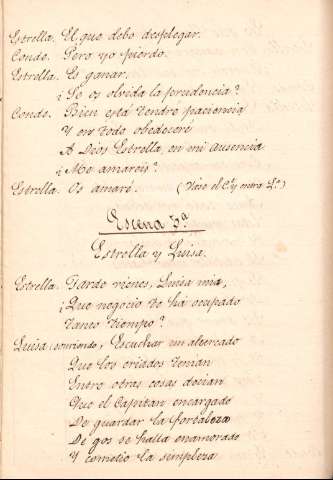 Estrella. El que debo desplegar.
Conde. Pero yo pierdo.
Estrella. Es ganar.
¿Se os olvida la prudencia?
Conde. Bien está tendré paciencia
Y en todo obedeceré
A Dios Estrella, en mi ausencia
¿Me amareis?
Estrella. Os amaré. (Vase el C.e y entra L.a)
Escena 3ª
Estrella y Luisa.
Estrella. Tarde vienes, Luisa mia,
¿Que negocio te ha ocupado
Tanto tiempo?
Luisa, sonriendo, Escuchar un altercado
Que los criados tenian
Entre otras cosas decian
Que el Capitan encargado
De guardar la fortaleza
De gos se halla enamorado
Y cometio la simpleza